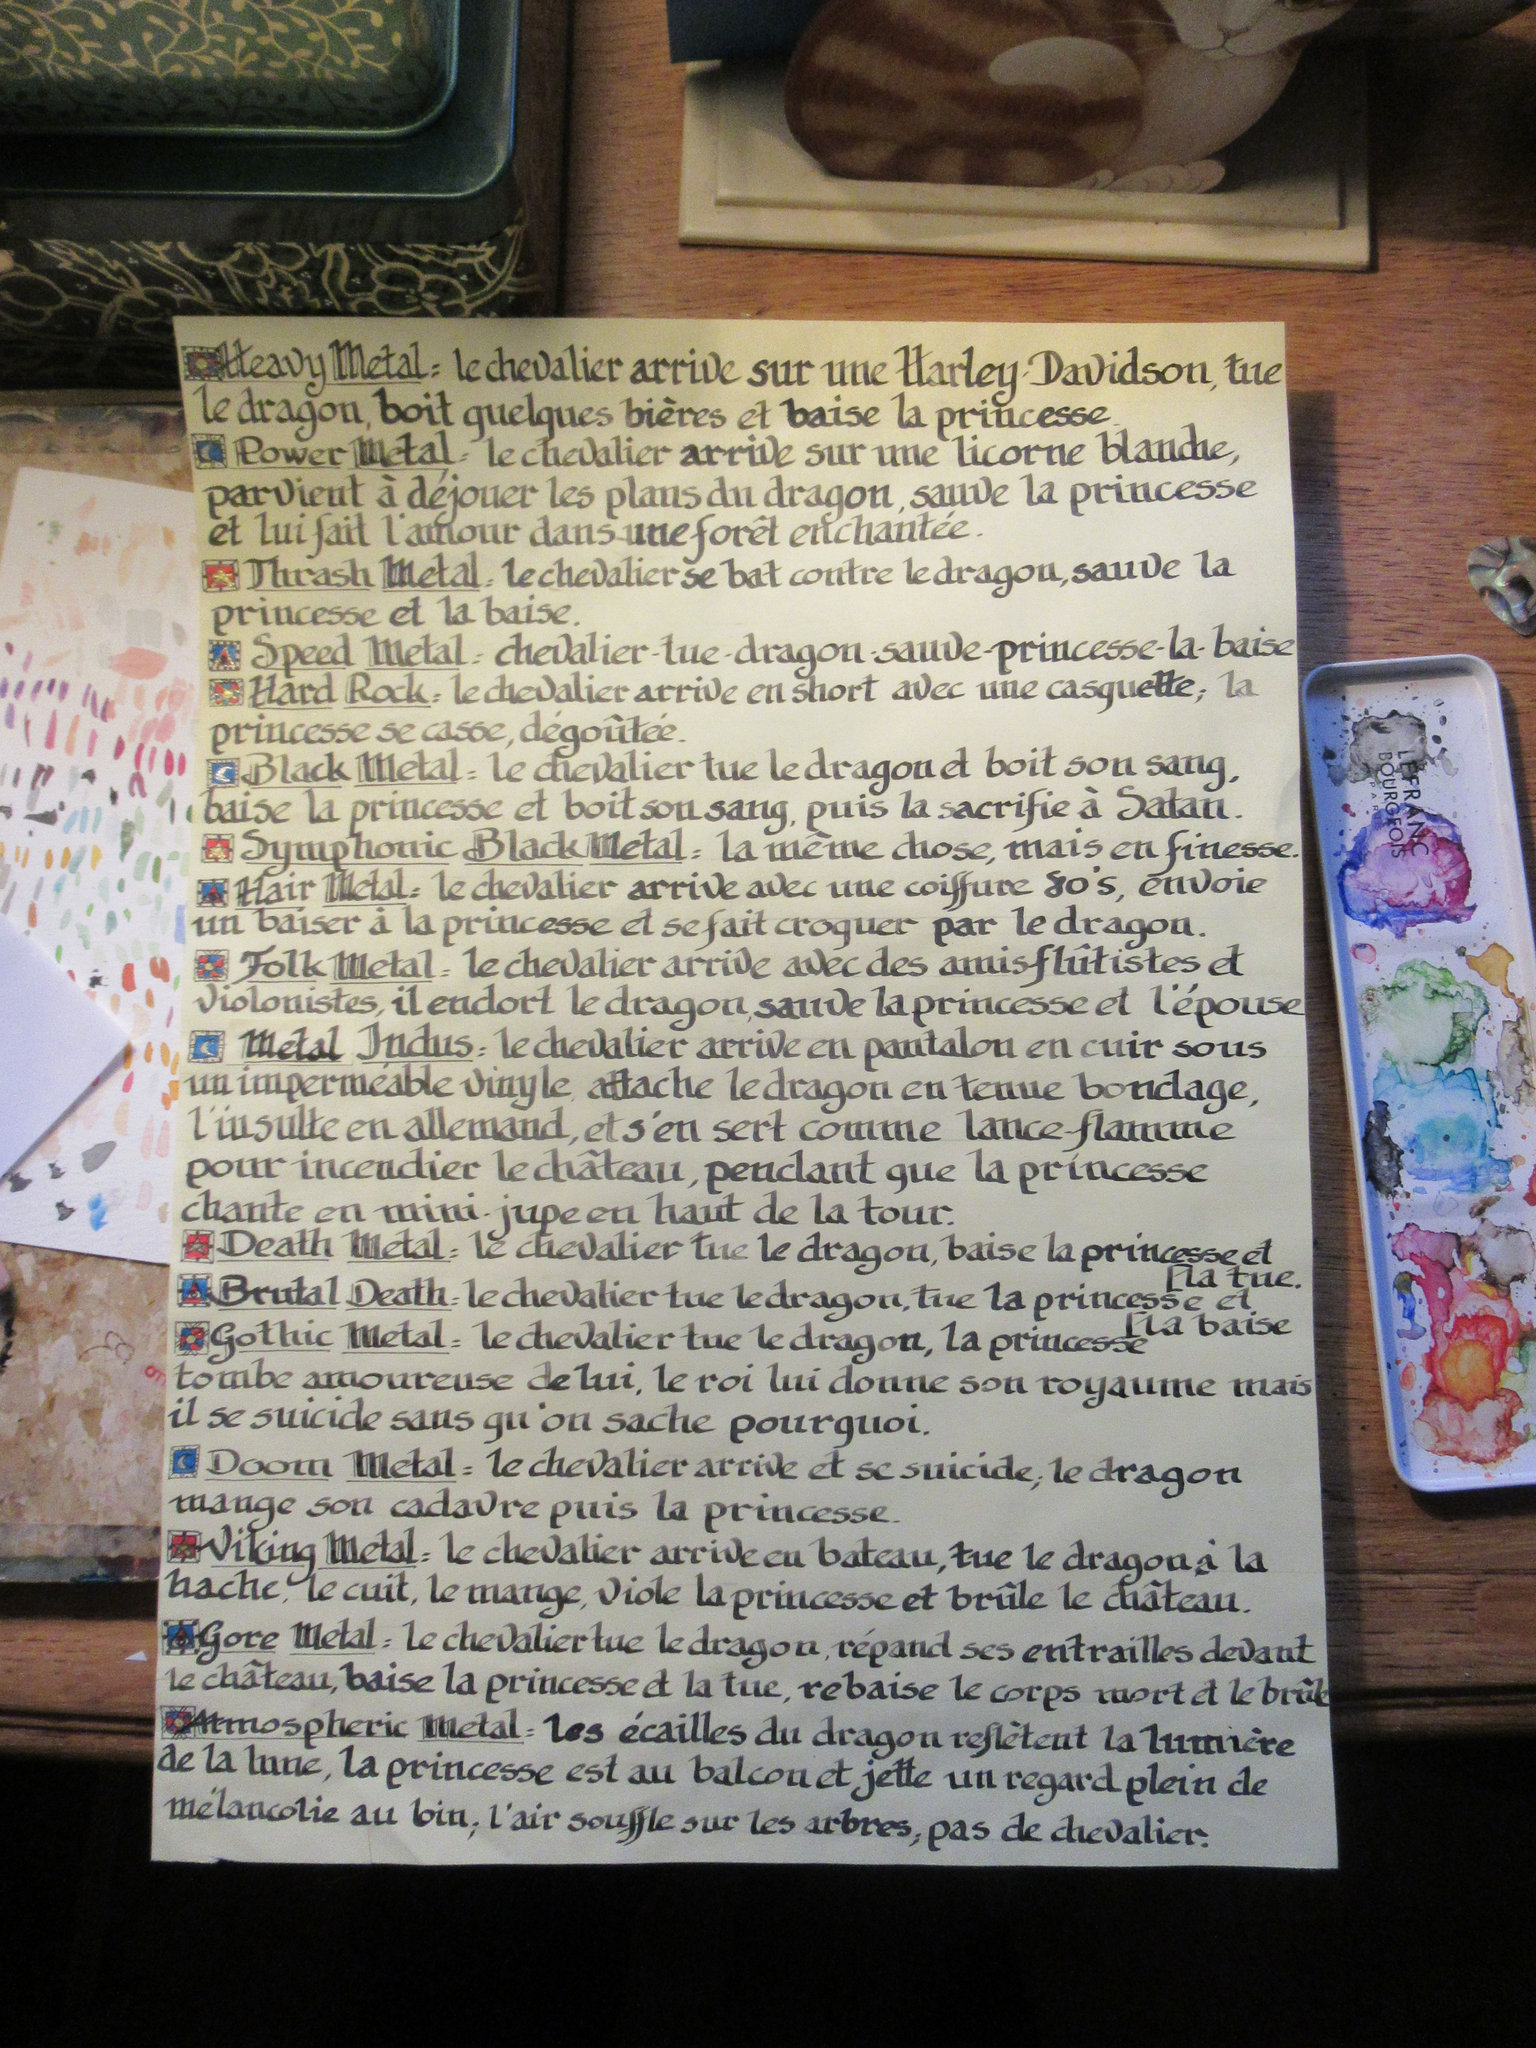 Heavy Metal : le chevalier arrive sur une Harley-Davidson, tue
le dragon, boit quelques bières et baise la princesse.
Power Metal : le chevalier arrive sur une licorne blanche,
parvient à déjouer les plans du dragon, sauve la princesse
et lui fait l'amour dans une forêt enchantée.
Thrash Metal : le chevalier se bat contre le dragon, sauve la
princesse et la baise.
Speed Metal : chevalier-tue-dragon-sauve-princesse-la-baise
Hard Rock : le chevalier arrive en short avec une casquette ; la
princesse se casse, dégoûtée.
Black Metal : le chevalier tue le dragon et boit son sang,
baise la princesse et boit son sang, puis la sacrifie à Satan.
Symphonic Black Metal : la même chose, mais en finesse.
Hair Metal : le chevalier arrive avec une coiffure 80's, envoie
un baiser à la princesse et se fait croquer par le dragon.
Folk Metal : le chevalier arrive avec des amis flûtistes et
violonistes, il endort le dragon, sauve la princesse et l'épouse
Metal Indus : le chevalier arrive en pantalon en cuir sous
un imperméable vinyle, attache le dragon en tenue bondage,
l'insulte en allemand, et s'en sert comme lance-flamme
pour incendier le château, pendant que la princesse
chante en mini-jupe en haut de la tour.
Death Metal : le chevalier tue le dragon, baise la princesse et
la tue.
Brutal Death : le chevalier tue le dragon, tue la princesse et
la baise
Gothic Metal : le chevalier tue le dragon, la princesse
tombe amoureuse de lui, le roi lui donne son royaume mais
il se suicide sans qu'on sache pourquoi.
Doom Metal : le chevalier arrive et se suicide ; le dragon
mange son cadavre puis la princesse.
Viking Metal : le chevalier arrive en bateau, tue le dragon à la
hache, le cuit, le mange, viole la princesse et brûle le château.
Gore Metal : le chevalier tue le dragon, répand ses entrailles devant
le château, baise la princesse et la tue, rebaise le corps mort et le brûle
Atmospheric Metal : les écailles du dragon reflètent la lumière
de la lune, la princesse est au balcon et jette un regard plein de
mélancolie au loin ; l'air souffle sur les arbres ; pas de chevalier.
LEFRANC
BOURGEOIS
PARIS